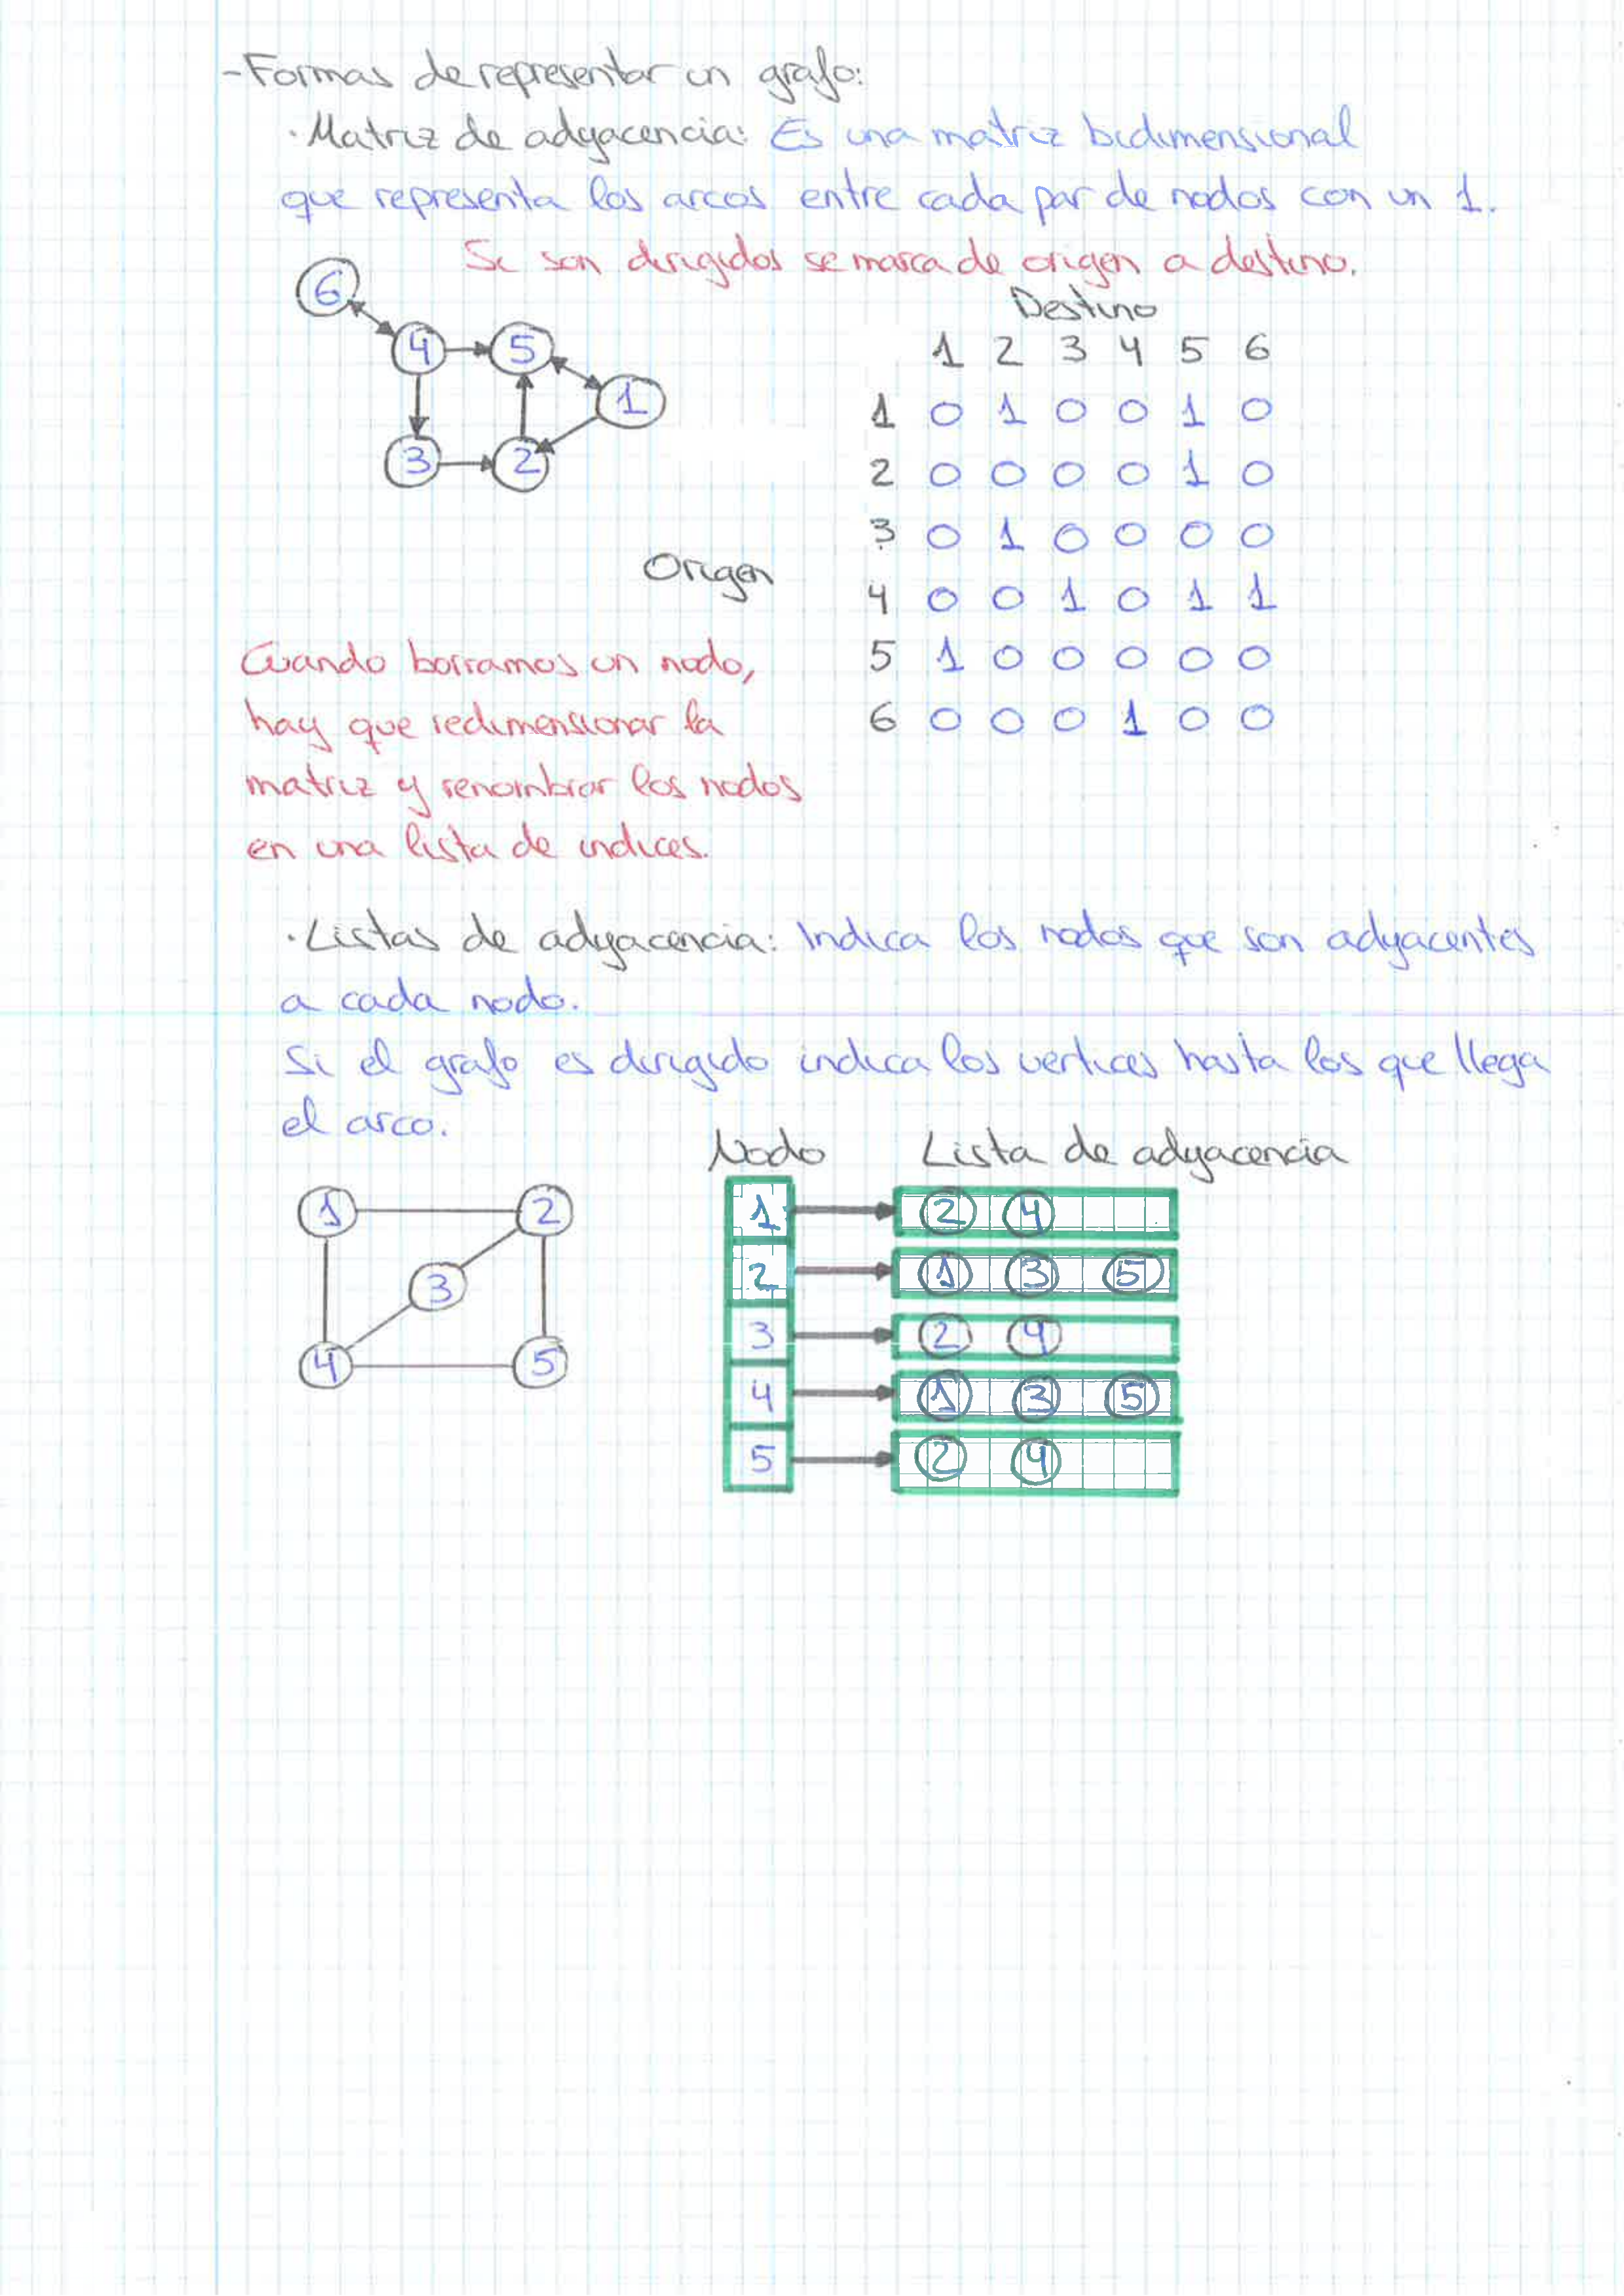 -Formas de representar un grafo:
·Matriz de adyacencia: Es una matriz bidimensional
que representa los arcos entre cada par de nodos con un 1.
Si son dirigidos se marca de origen a destino.
6
4 5
1
3 2
Destino
1 2 3 4 5 6
1 0 1 0 0 1 0
2 0 0 0 0 1 0
3 0 1 0 0 0 0
Origen
4 0 0 1 0 1 1
5 1 0 0 0 0 0
6 0 0 0 1 0 0
Cuando borramos un nodo,
hay que redimensionar la
matriz y renombrar los nodos
en una lista de indices.
·Listas de adyacencia: Indica los nodos que son adyacentes
a cada nodo.
Si el grafo es dirigido indica los vertices hasta los que llega
el arco.
1 2
3
4 5
Nodo Lista de adyacencia
1 2 4
2 1 3 5
3 2 4
4 1 3 5
5 2 4